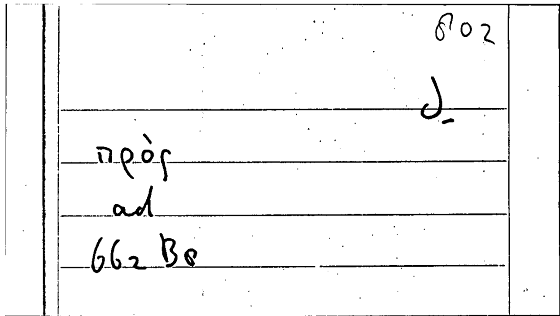 802
لـ
πρὸς
ad
662 B8